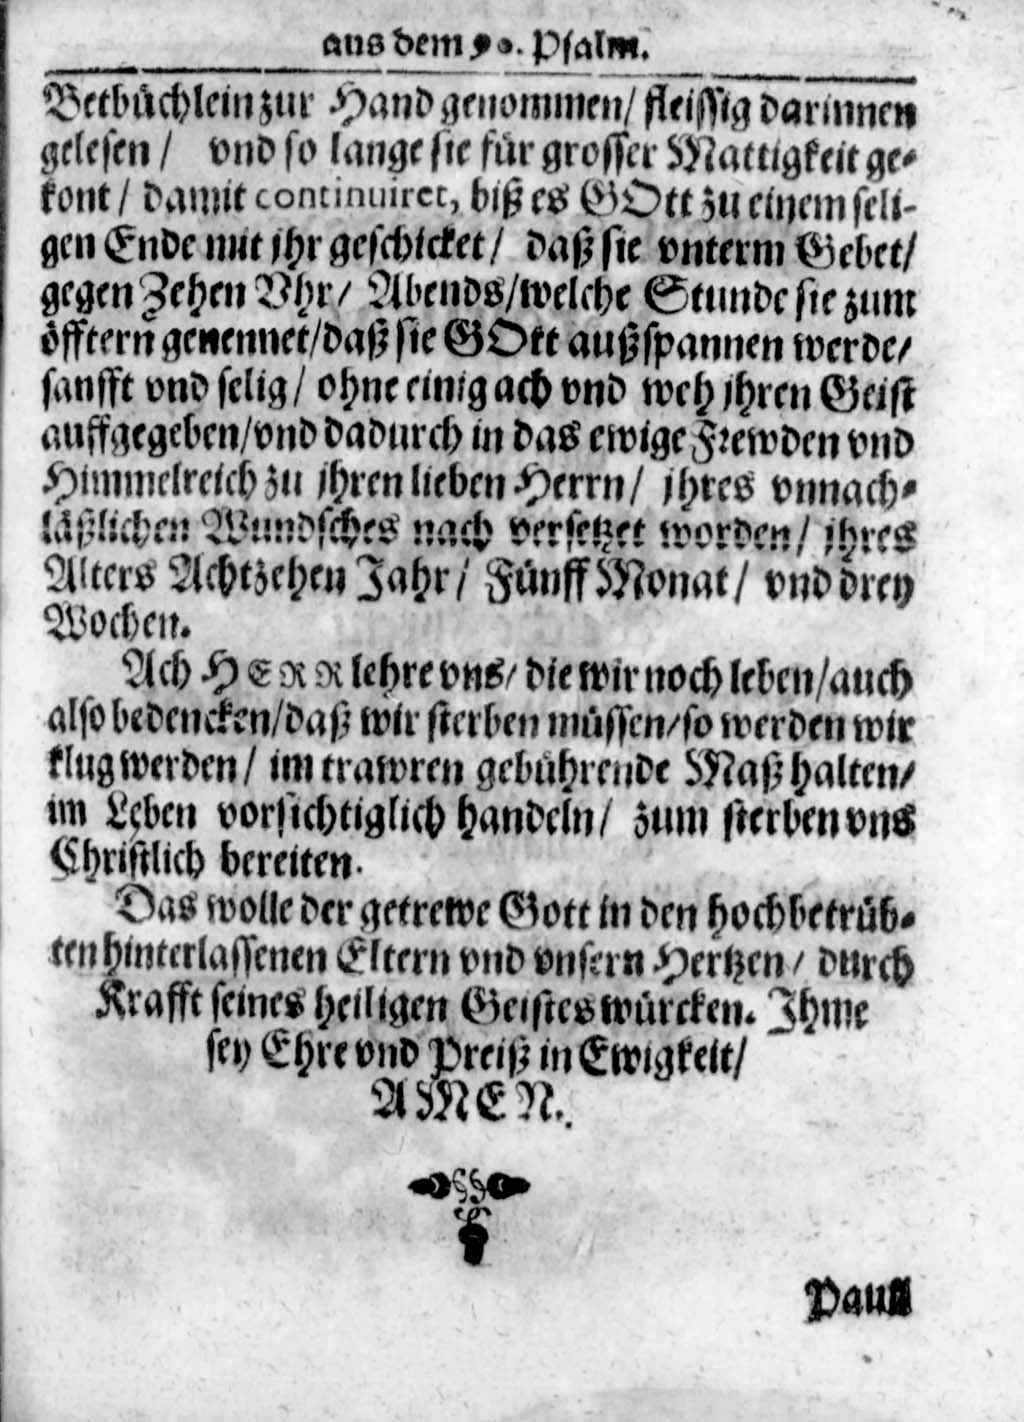 aus dem 90. Psalm.
Betbüchlein zur Hand genommen/ fleissig darinnen
gelesen/ vnd so lange sie für grosser Mattigkeit ge-
kont/ damit continuiret, biß es GOtt zu einem seli-
gen Ende mit jhr geschicket/ daß sie vnterm Gebet/
gegen Zehen Vhr/ Abends/welche Stunde sie zum
öfftern genennet/daß sie GOtt außspannen werde/
sanfft vnd selig/ ohne einig ach vnd weh jhren Geist
auffgegeben/vnd dadurch in das ewige Frewden vnd
Himmelreich zu jhren lieben Herrn/ jhres vnnach-
läßlichen Wundsches nach versetzet worden/ jhres
Alters Achtzehen Jahr/ Fünff Monat/ vnd drey
Wochen.
Ach HERR lehre vns/ die wir noch leben/auch
also bedencken/daß wir sterben müssen/so werden wir
klug werden/ im trawren gebührende Maß halten/
im Leben vorsichtiglich handeln/ zum sterben vns
Christlich bereiten.
Das wolle der getrewe Gott in den hochbetrüb-
ten hinterlassenen Eltern vnd vnsern Hertzen/ durch
Krafft seines heiligen Geistes würcken. Jhme
sey Ehre vnd Preiß in Ewigkeit/
AMEN.